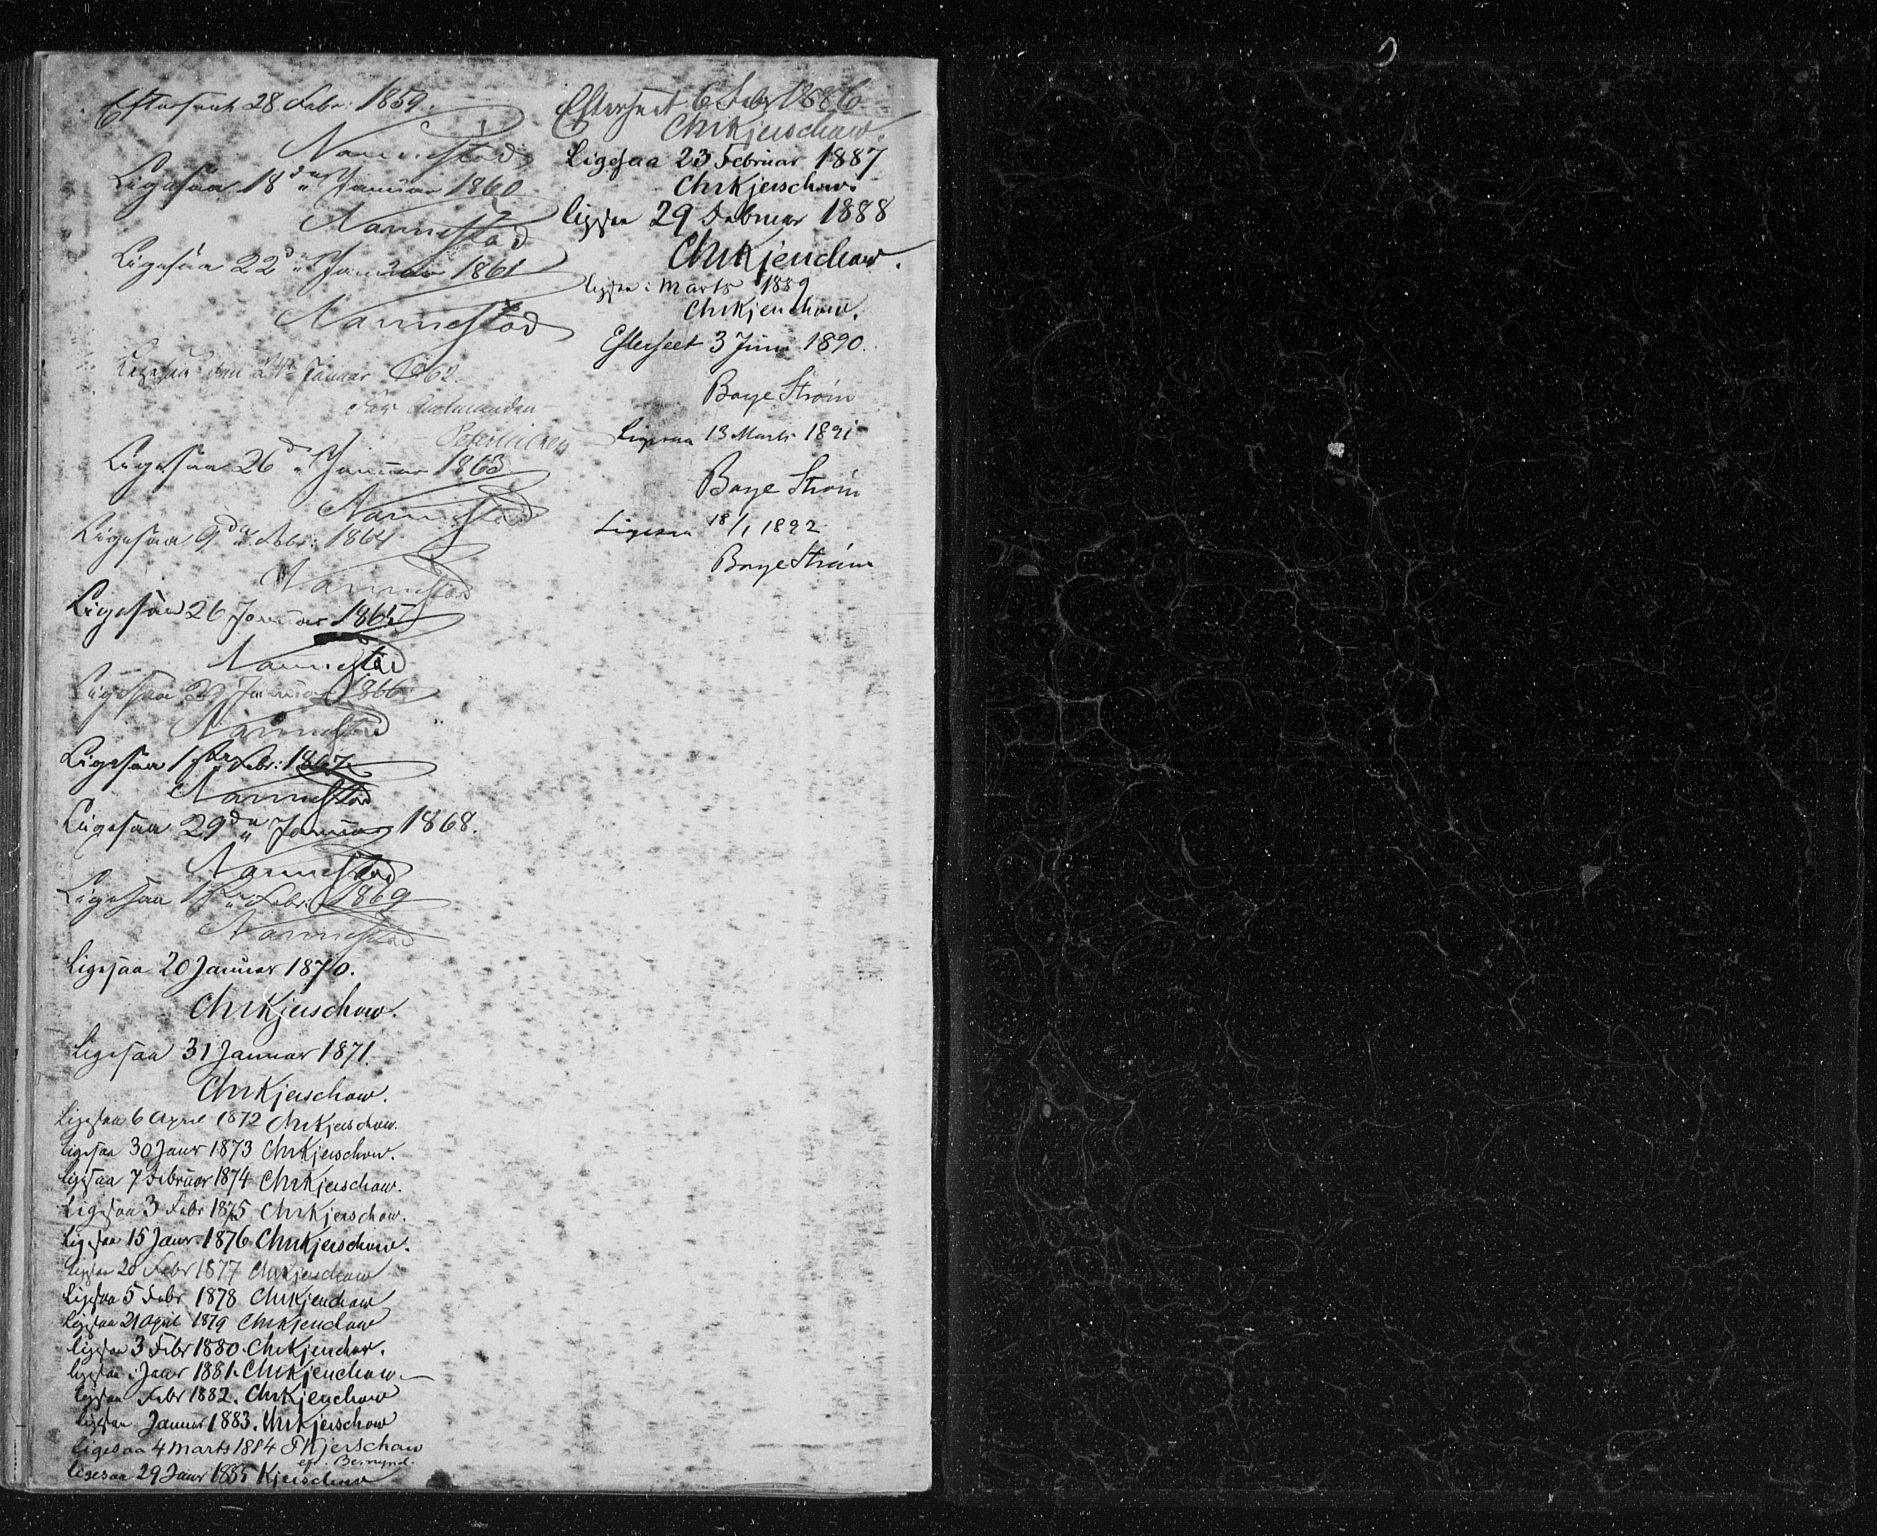 Efterseet 28 Febr. 1859.
Nannestad
Ligesaa 18de Januar 1860
Nannestad
Ligesaa 22de Januar 1861
Nannestad
Ligesaa den 24de Januar 1862.
For Amtmanden
Ligesaa 26de Januar 1863
Nannestad
Ligesaa 9de Febr: 1864
Nannestad
Ligesaa 26 Januar 1865
Nannestad
Ligesaa 29 Januar 1866
Nannestad
Ligesaa 1ste Febr: 1867
Nannestad
Ligesaa 29de Januar 1868.
Nannestad
Ligesaa 1ste Febr: 1869
Nannestad
Ligesaa 20 Januar 1870.
Chr Kjerschow.
Ligesaa 31 Januar 1871.
Chr Kjerschow.
Ligesaa 6 April 1872 Chr Kjerschow.
Ligesaa 30 Janr 1873 Chr Kjerschow.
Ligesaa 7 Februar 1874 Chr Kjerschow.
Ligesaa 3 Febr 1875 Chr Kjerschow.
Ligesaa 15 Janr. 1876 Chr Kjerschow.
Ligesaa 20 Febr 1877 Chr Kjerschow
Ligesaa 5 Febr 1878 Chr Kjerschow
Ligesaa 21 April 1879 Chr Kjerschow
Ligesaa 3 Febr 1880. Chr Kjerschow.
Ligesaa i Janr 1881. Chr Kjerschow
Ligesaa Febr 1882. Chr Kjerschow
Ligesaa Januar 1883. Chr Kjerschow
Ligesaa 4 Marts 1884 Kjerschow
eft. Bemynd.
Ligesaa 29 Janr 1885 Kjerschow
Efterseet 6 Febr 1886
Chr Kjerschow.
Ligesaa 23 Februar 1887
Chr Kjerschow.
Ligesaa 29 Februar 1888
Chr Kjerschow.
Ligesaa i Marts 1889
Chr Kjerschow.
Efterseet 3 Juni 1890.
Boye Strøm
Ligesaa 13 Marts 1891
Boye Strøm
Ligesaa 18/1 1892
Boye Strøm